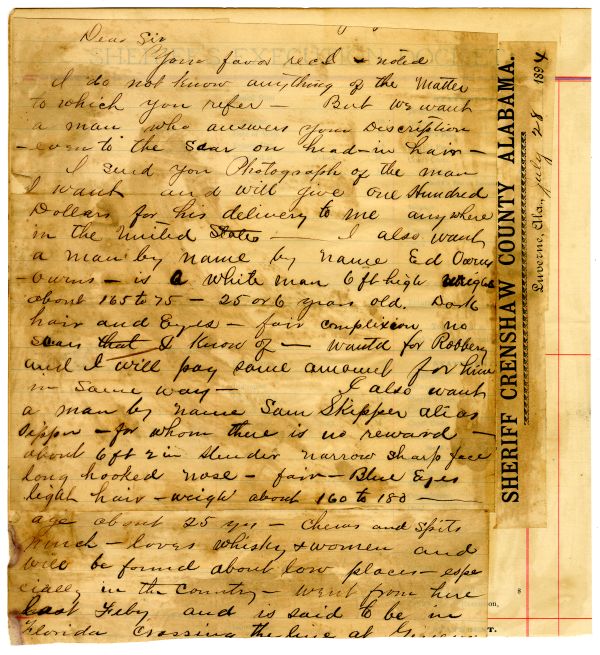 Dear Sir
Your favor rec'd & noted
I do not know anything of the Matter
to which you refer — But we want
a man who answers your Discription
- even to the Scar on head - in hair -
I send you Photograph of the man
I want and will give one Hundred
Dollars for his delivery to me anywhere
in the United States — I also want
a man by name by name Ed
- owens - is a white man 6 ft high weighs
about 165 to 75 — 25 or 6 years old. Dark
hair and Eyes — fair complexion no
scars that I know of — wantd for Robbery
and I will pay same amount for him
in same way — I also want
a man by name Sam Skipper alias
— for whom there is no reward —
about 6 ft 2 in slender narrow sharp face
long hooked nose — fair — Blue Eyes
light hair — weigh about 160 to 180 —
age about 25 yrs — chews and spits
much — loves whisky & women and
will be found about low places — espe
cially in the country — went from here
last Feby and is said to be in
Florida crossing the line at
SHERIFF CRENSHAW COUNTY ALABAMA.
Luverne, Ala., July 28 1894
SHERIFF'S EXECUTION DOCKET
8